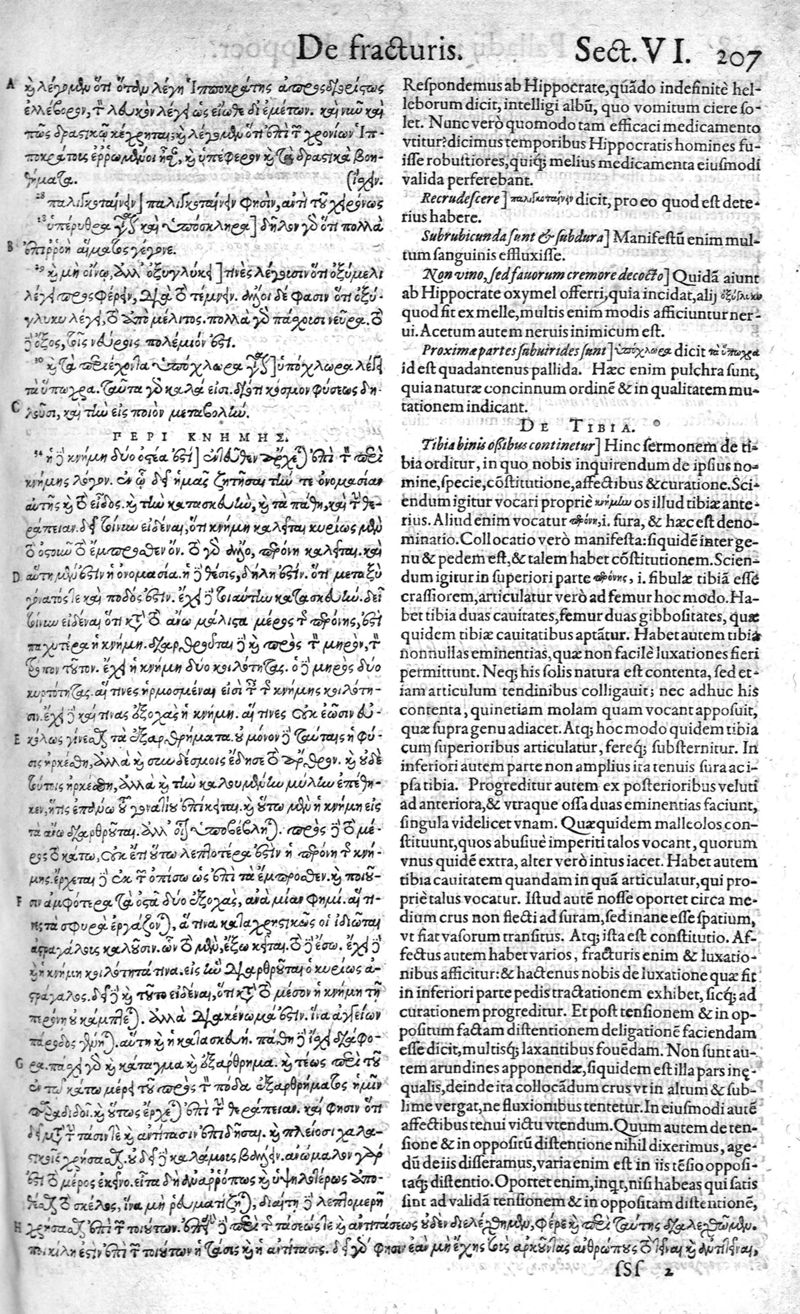 De fracturis. Sect. VI. 207
A
ὅτι ὅταν λέγῃ Ἱπποκράτης
ἐλλέβορον, τὸν λευκὸν λέγει ὡς εἴωθε δι' ἐμέτων. καὶ νῦν καὶ
πῶς κέχρηται; ὅτι ἐπὶ τῶν χρόνων Ἱπ-
ποκράτους ἐῤῥωμένοι ἦσαν, καὶ ὑπέφερον καὶ τὰ δραστικὰ βοη-
θήματα.
παλιγκοταίνῃ] παλιγκοταίνῃ φησὶν, ἀντὶ τοῦ χειρόνως
ὑπέρυθρα καὶ ὑπόσκληρα] δῆλον γὰρ ὅτι πολλὰ
B
ἐπιῤῥοὴ αἵματος γέγονε.
καὶ μὴ οἴνῳ, ἀλλ' ὀξυγλύκει] τινὲς λέγουσιν ὅτι ὀξύμελι
λέγει προσφέρειν, διὰ τὸ τέμνειν. ἄλλοι δέ φασιν ὅτι ὀξύ-
γλυκυ λέγει, τὸ ἀπὸ μέλιτος. πολλὰ γὰρ πάσχουσι νεῦρα. τὸ
δὲ ὄξος, τοῖς νεύροις πολέμιόν ἐστι.
καὶ τὰ περιέχοντα ὑπόχλωρα ᾖ] ὑπόχλωρα λέγει
τὰ ὕπωχρα. ταῦτα γὰρ καλά εἰσι. διότι κόσμον φύσεως δη-
C
λοῦσι, καὶ τὴν εἰς ποιὸν μεταβολήν.
ΠΕΡΙ ΚΝΗΜΗΣ.
ἡ δὲ κνήμη δύο ὀστέα ἐστὶ] ἐντεῦθεν ἄρχεται ἐπὶ τὸν περὶ
κνήμης λόγον. ἐν ᾧ δεῖ ἡμᾶς ζητῆσαι τήν τε ὀνομασίαν
αὐτῆς καὶ τὸ εἶδος. καὶ τὴν κατασκευὴν, καὶ τὰ πάθη, καὶ τὴν θε-
ράπειαν. δεῖ τοίνυν εἰδέναι, ὅτι κνήμη καλεῖται κυρίως μὲν
τὸ ὀστοῦν τὸ ἔμπροσθεν ὄν. τὸ γὰρ ἄλλο, περόνη καλεῖται. καὶ
D
αὕτη μὲν ἐστὶν ἡ ὀνομασία. ἡ δὲ θέσις, δήλη ἐστὶν. ὅτι μεταξὺ
γόνατός τε καὶ ποδὸς ἐστὶν. ἔχει δὲ τοιαύτην κατασκευήν. δεῖ
τοίνυν εἰδέναι ὅτι κατὰ τὸ ἄνω μάλιστα μέρος τῆς περόνης, ἐστὶ
παχυτέρα ἡ κνήμη. διαρθροῦται δὲ καὶ πρὸς τὸν μηρὸν, τὸν
τρόπον τοῦτον. ἔχει ἡ κνήμη δύο κοιλότητας. ὁ δὲ μηρὸς δύο
κυρτότητας. αἵ τινες ἡρμοσμέναι εἰσὶ ταῖς τῆς κνήμης κοιλότη-
σιν. ἔχει δὲ καί τινας ἐξοχὰς ἡ κνήμη. αἵ τινες οὐκ ἐῶσιν εὐ-
E
κόλως γίνεσθαι τὰ ἐξαρθρήματα. οὐ μόνον δὲ ταύταις ἡ φύ-
σις ἠρκέσθη, ἀλλὰ καὶ συνδέσμοις ἔδησε τὸ ἄρθρον. καὶ οὐδὲ
τούτοις ἠρκέσθη, ἀλλὰ καὶ τὴν καλουμένην μύλην ἐπέθη-
κεν, ἥτις ἐπάνω τοῦ γόνατος ἐπίκειται. καὶ οὕτω μὲν ἡ κνήμη εἰς
τὰ ἄνω διαρθροῦται. πρὸς δὲ τὸ μέ-
ρος τὸ κάτω, οὐκ ἔτι οὕτω λεπτοτέρα ἐστὶν ἡ περόνη τῆς κνή-
μης. ἔρχεται δὲ ἐκ τῶν ὀπίσω ὡς ἐπὶ τὰ ἔμπροσθεν. καὶ ποιοῦ-
F
σιν ἀμφότερα τὰ ὀστᾶ δύο ἐξοχὰς, ἀνὰ μίαν φημί. αἵ τι-
νες τὰ σφυρὰ ἐργάζονται, ἅ τινα καταχρηστικῶς οἱ ἰδιῶται
ἀστραγάλους καλοῦσιν. ὧν τὸ μὲν, ἔξω κεῖται. τὸ δὲ ἔσω. ἔχει δὲ
καὶ ἡ κνήμη κοιλότητά τινα. εἰς ἣν διαρθροῦται ὁ κυρίως ἀ-
στράγαλος. δεῖ δὲ καὶ τοῦτο εἰδέναι, ὅτι κατὰ τὸ μέσον ἡ κνήμη τῇ
περόνῃ οὐ κάμπτεται. ἀλλὰ διακένωμα ἐστὶν, ἵνα ἀγγείων
πάροδος γένηται. αὕτη καὶ ἡ κατασκευή. πάθη δὲ ἔχει διάφο-
G
ρα. πάσχει γὰρ καὶ κάταγμα καὶ ἐξάρθρημα. καὶ τέως περὶ τοῦ
ἐν τῷ κάτω μέρει τοῦ πρὸς τὸν πόδα ἐξαρθρήματος ἡμῖν
παραδίδωσι. καὶ οὕτως ἔρχεται ἐπὶ τὴν θεράπειαν. καί φησιν ὅτι
δεῖ μετὰ τὴν τάσιν τε καὶ ἀντίτασιν ἐπιδῆσαι. καὶ πλείοσι χαλα-
στικοῖς χρήσασθαι. οὐ δεῖ δὲ καλάμους ἀνώμαλον γάρ
ἐστι τὸ μέρος ἐκεῖνο. εἶτα δὴ ἀνάῤῥοπον καὶ ὑψηλοτέρως
τὸ σκέλος, ἵνα μὴ ῥευματίζηται, διαίτῃ δὲ λεπτομερῆ
Respondemus ab Hippocrate, quãdo indefinitè hel-
leborum dicit, intelligi albũ, quo vomitum ciere so-
let. Nunc verò quomodo tam efficaci medicamento
vtitur? dicimus temporibus Hippocratis homines fu-
isse robustiores, quiq; melius medicamenta eiusmodi
valida perferebant.
Recrudescere] παλιγκοταίνῃν dicit, pro eo quod est dete-
rius habere.
Subrubicunda sunt & subdura] Manifestũ enim mul-
tum sanguinis effluxisse.
Non vino, sed fauorum cremore decocto] Quidã aiunt
ab Hippocrate oxymel offerri, quia incidat, alij ὀξύγλυκυ
quod fit ex melle, multis enim modis afficiuntur ner-
ui. Acetum autem neruis inimicum est.
Proximæ partes subuirides sunt] ὑπόχλωρα dicit τὰ ὕπωχρα
id est quadantenus pallida. Hæc enim pulchra sunt,
quia naturæ concinnum ordinẽ & in qualitatem mu-
tationem indicant.
DE TIBIA.
Tibia binis oßibus continetur] Hinc sermonem de ti-
bia orditur, in quo nobis inquirendum de ipsius no-
mine, specie, cõstitutione, affectibus & curatione. Sci-
endum igitur vocari propriè κνήμην os illud tibiæ ante-
rius. Aliud enim vocatur περόνη, i. sura, & hæc est deno-
minatio. Collocatio verò manifesta: siquidem inter ge-
nu & pedem est, & talem habet cõstitutionem. Scien-
dum igitur in superiori parte περόνης, i. fibulæ tibiã esse
crassiorem, articulatur verò ad femur hoc modo. Ha-
bet tibia duas cauitates, femur duas gibbositates, quæ
quidem tibiæ cauitatibus aptãtur. Habet autem tibia
nonnullas eminentias, quæ non facilè luxationes fieri
permittunt. Neq; his solis natura est contenta, sed et-
iam articulum tendinibus colligauit; nec adhuc his
contenta, quinetiam molam quam vocant apposuit,
quæ supra genu adiacet. Atq; hoc modo quidem tibia
cum superioribus articulatur, fereq; substernitur. In
inferiori autem parte non amplius ita tenuis sura ac i-
psa tibia. Progreditur autem ex posterioribus veluti
ad anteriora, & vtraque ossa duas eminentias faciunt,
singula videlicet vnam. Quæ quidem malleolos con-
stituunt, quos abusiuè imperiti talos vocant, quorum
vnus quidẽ extra, alter verò intus iacet. Habet autem
tibia cauitatem quandam in quã articulatur, qui pro-
priè talus vocatur. Istud autẽ nosse oportet circa me-
dium crus non flecti ad suram, sed inane esse spatium,
vt fiat vasorum transitus. Atq; ista est constitutio. Af-
fectus autem habet varios, fracturis enim & luxatio-
nibus afficitur: & hactenus nobis de luxatione quæ fit
in inferiori parte pedis tractationem exhibet, sicq; ad
curationem progreditur. Et post tensionem & in op-
positum factam distentionem deligationẽ faciendam
esse dicit, multisq; laxantibus fouẽdam. Non sunt au-
tem arundines apponendæ, siquidem est illa pars inę-
qualis, deinde ita collocãdum crus vt in altum & sub-
lime vergat, ne fluxionibus tentetur. In eiusmodi autẽ
affectibus tenui victu vtendum. Quum autem de ten-
sione & in oppositũ distentione nihil dixerimus, age-
dũ de iis disseramus, varia enim est in iis tẽsio opposi-
taq; distentio. Oportet enim, inqt, nisi habeas qui satis
sint ad validã tensionem & in oppositam distentionẽ,
H
χρῆσθαι ἐπὶ τῶν τοιούτων. ἐπεὶ δὲ περὶ τάσεώς τε καὶ ἀντιτάσεως οὐδὲν διελέχθημεν, φέρε καὶ περὶ ταύτης διαλεχθῶμεν.
ποικίλη ἐστὶν ἐπὶ τῶν τοιούτων ἡ τάσις καὶ ἡ ἀντίτασις. δεῖ γάρ φησιν ἐὰν μὴ ἔχῃς τοὺς ἀρκοῦντας ἀνθρώπους
sSs 2